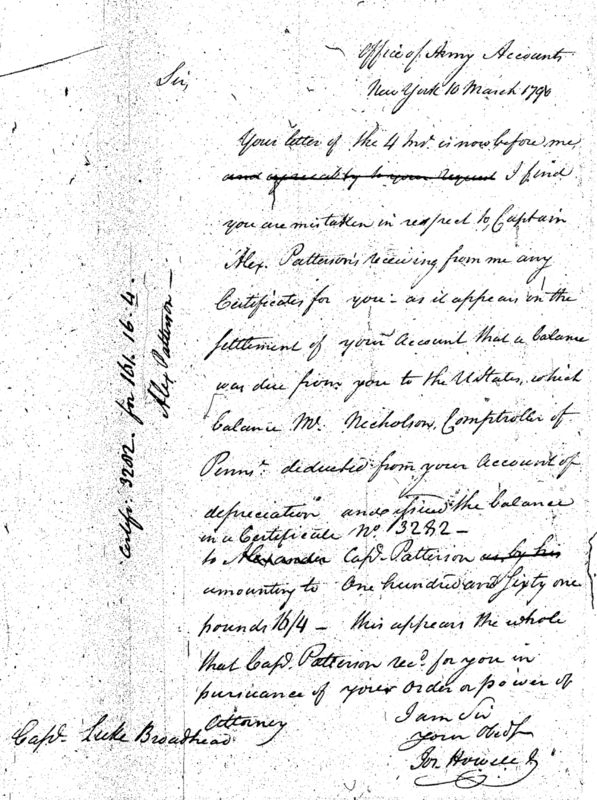 Office of Army Accounts
New York 10 March 1790
Sir,
Your letter of the 4 Inst. is now before me,
and agreeably to your request I find
you are mistaken in respect to Captain
Alex. Patterson's receiving from me any
Certificates for you - as it appears in the
settlement of your Account that a balance
was due from you to the U States, which
balance Mr. Nicholson, Comptroller of
Pennsa. deducted from your Account of
depreciation and issued the balance
in a Certificate No. 3282 -
to Alexander Capt. Patterson as by his
amounting to One hundred and Sixty one
pounds 16/4 - this appears the whole
that Capt. Patterson recd. for you in
pursuance of your Order or power of
Attorney
I am Sir
Your Obedt
Jos. Howell Jr
Capt. Luke Broadhead
Certife. 3282. for 161. 16. 4.
Alex Patterson -